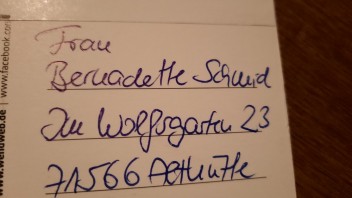 Frau
Bernadette Schmid
Im Wolfsgarten 23
71566 Althütte
www.facebook.com
www.weliuweb.de